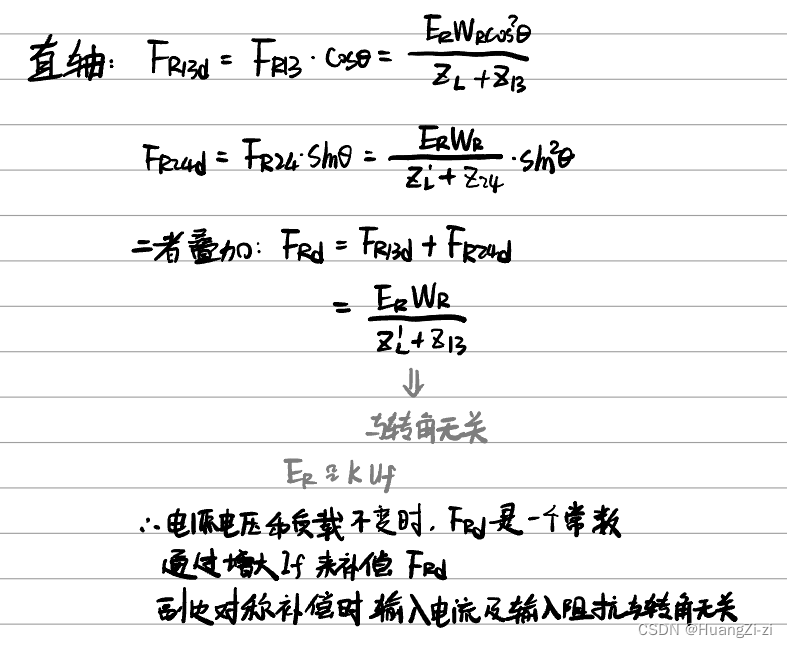 直轴: F_{R13d} = F_{R13} · cosθ = \frac{E_R W_R cos²θ}{Z_L + Z_{13}}
F_{R24d} = F_{R24} · sinθ = \frac{E_R W_R}{Z_L' + Z_{24}} · sin²θ
二者叠加: F_{Rd} = F_{R13d} + F_{R24d}
= \frac{E_R W_R}{Z_L' + Z_{13}}
⇓
与转角无关
E_R ≈ k U_f
∴电源电压和负载不变时, F_{Rd} 是一个常数
通过增大 I_f 来补偿 F_{Rd}
副边对称补偿时 输入电流及输入阻抗与转角无关
CSDN @HuangZi-zi